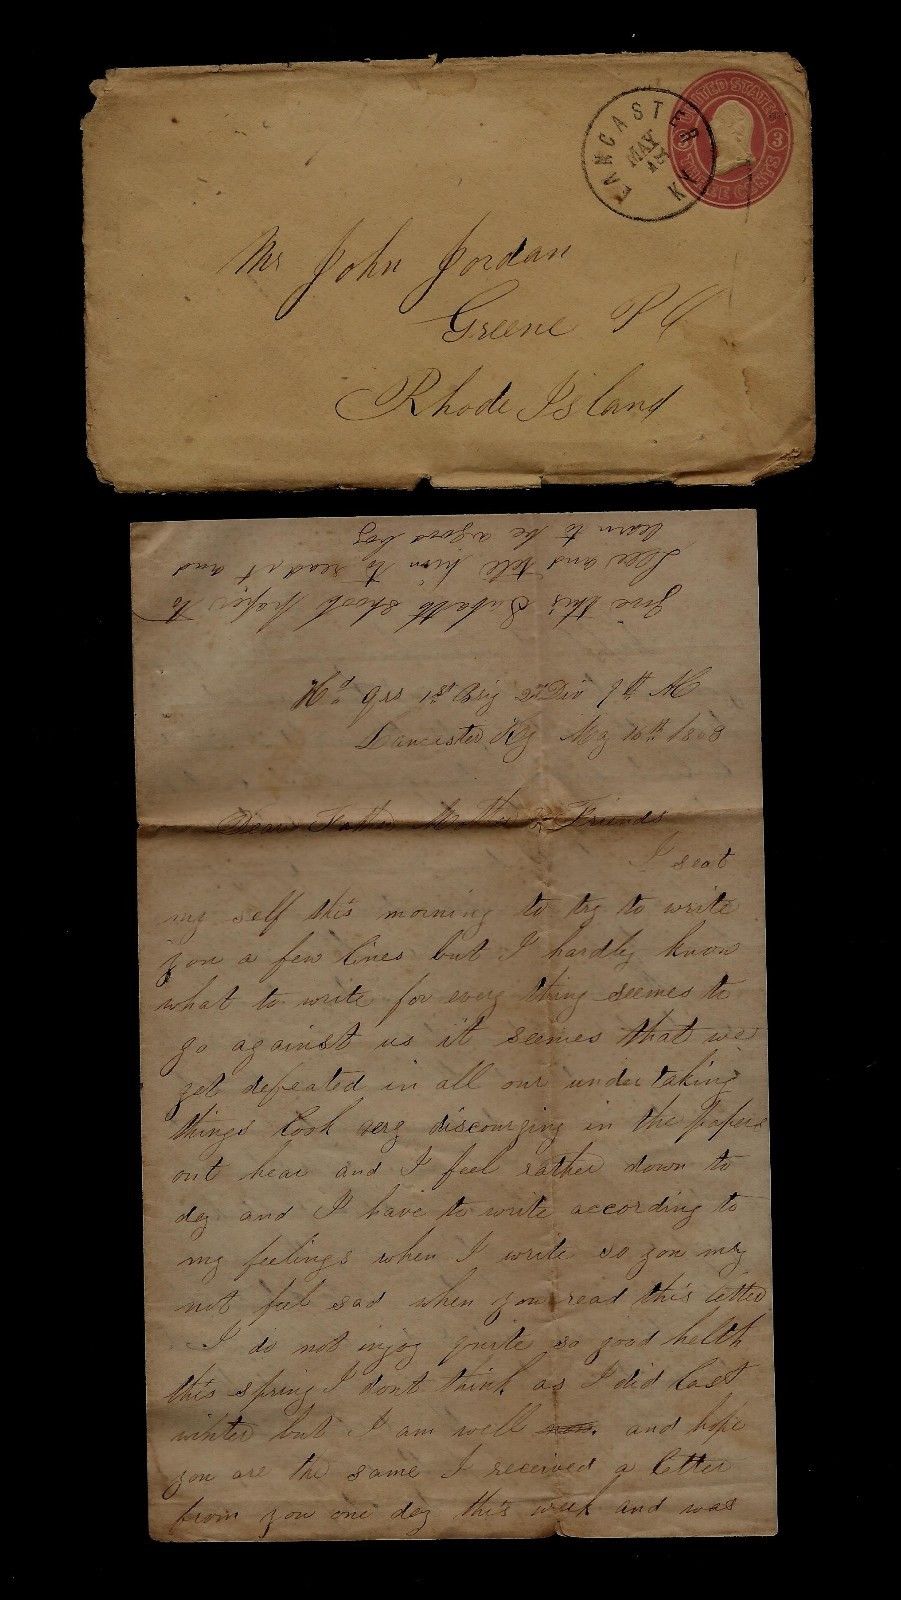 UNITED STATES
3 3
THREE CENTS
LANCASTER KY
MAY
15
Mr John Jordan
Greene P O
Rhode Island
Give this Sabath Shool paper to
Lew and tell him to read it and
learn to be a good boy
Hd Qrs 1st Brig 2nd Div 9th AC
Lancaster Ky May 10th 1863
Dear Father Mother & Friends
I seat
my self this morning to try to write
you a few lines but I hardly know
what to write for every thing seemes to
go against us it seemes that we
get defeated in all our under taking
things look very discourging in the papers
out hear and I feel rather down to
day and I have to write according to
my feelings when I write so you my
not feel sad when you read this letter
I do not injoy quite so good helth
this spring I dont think as I did last
winter but I am well now. and hope
you are the same I received a letter
from you one day this week and was